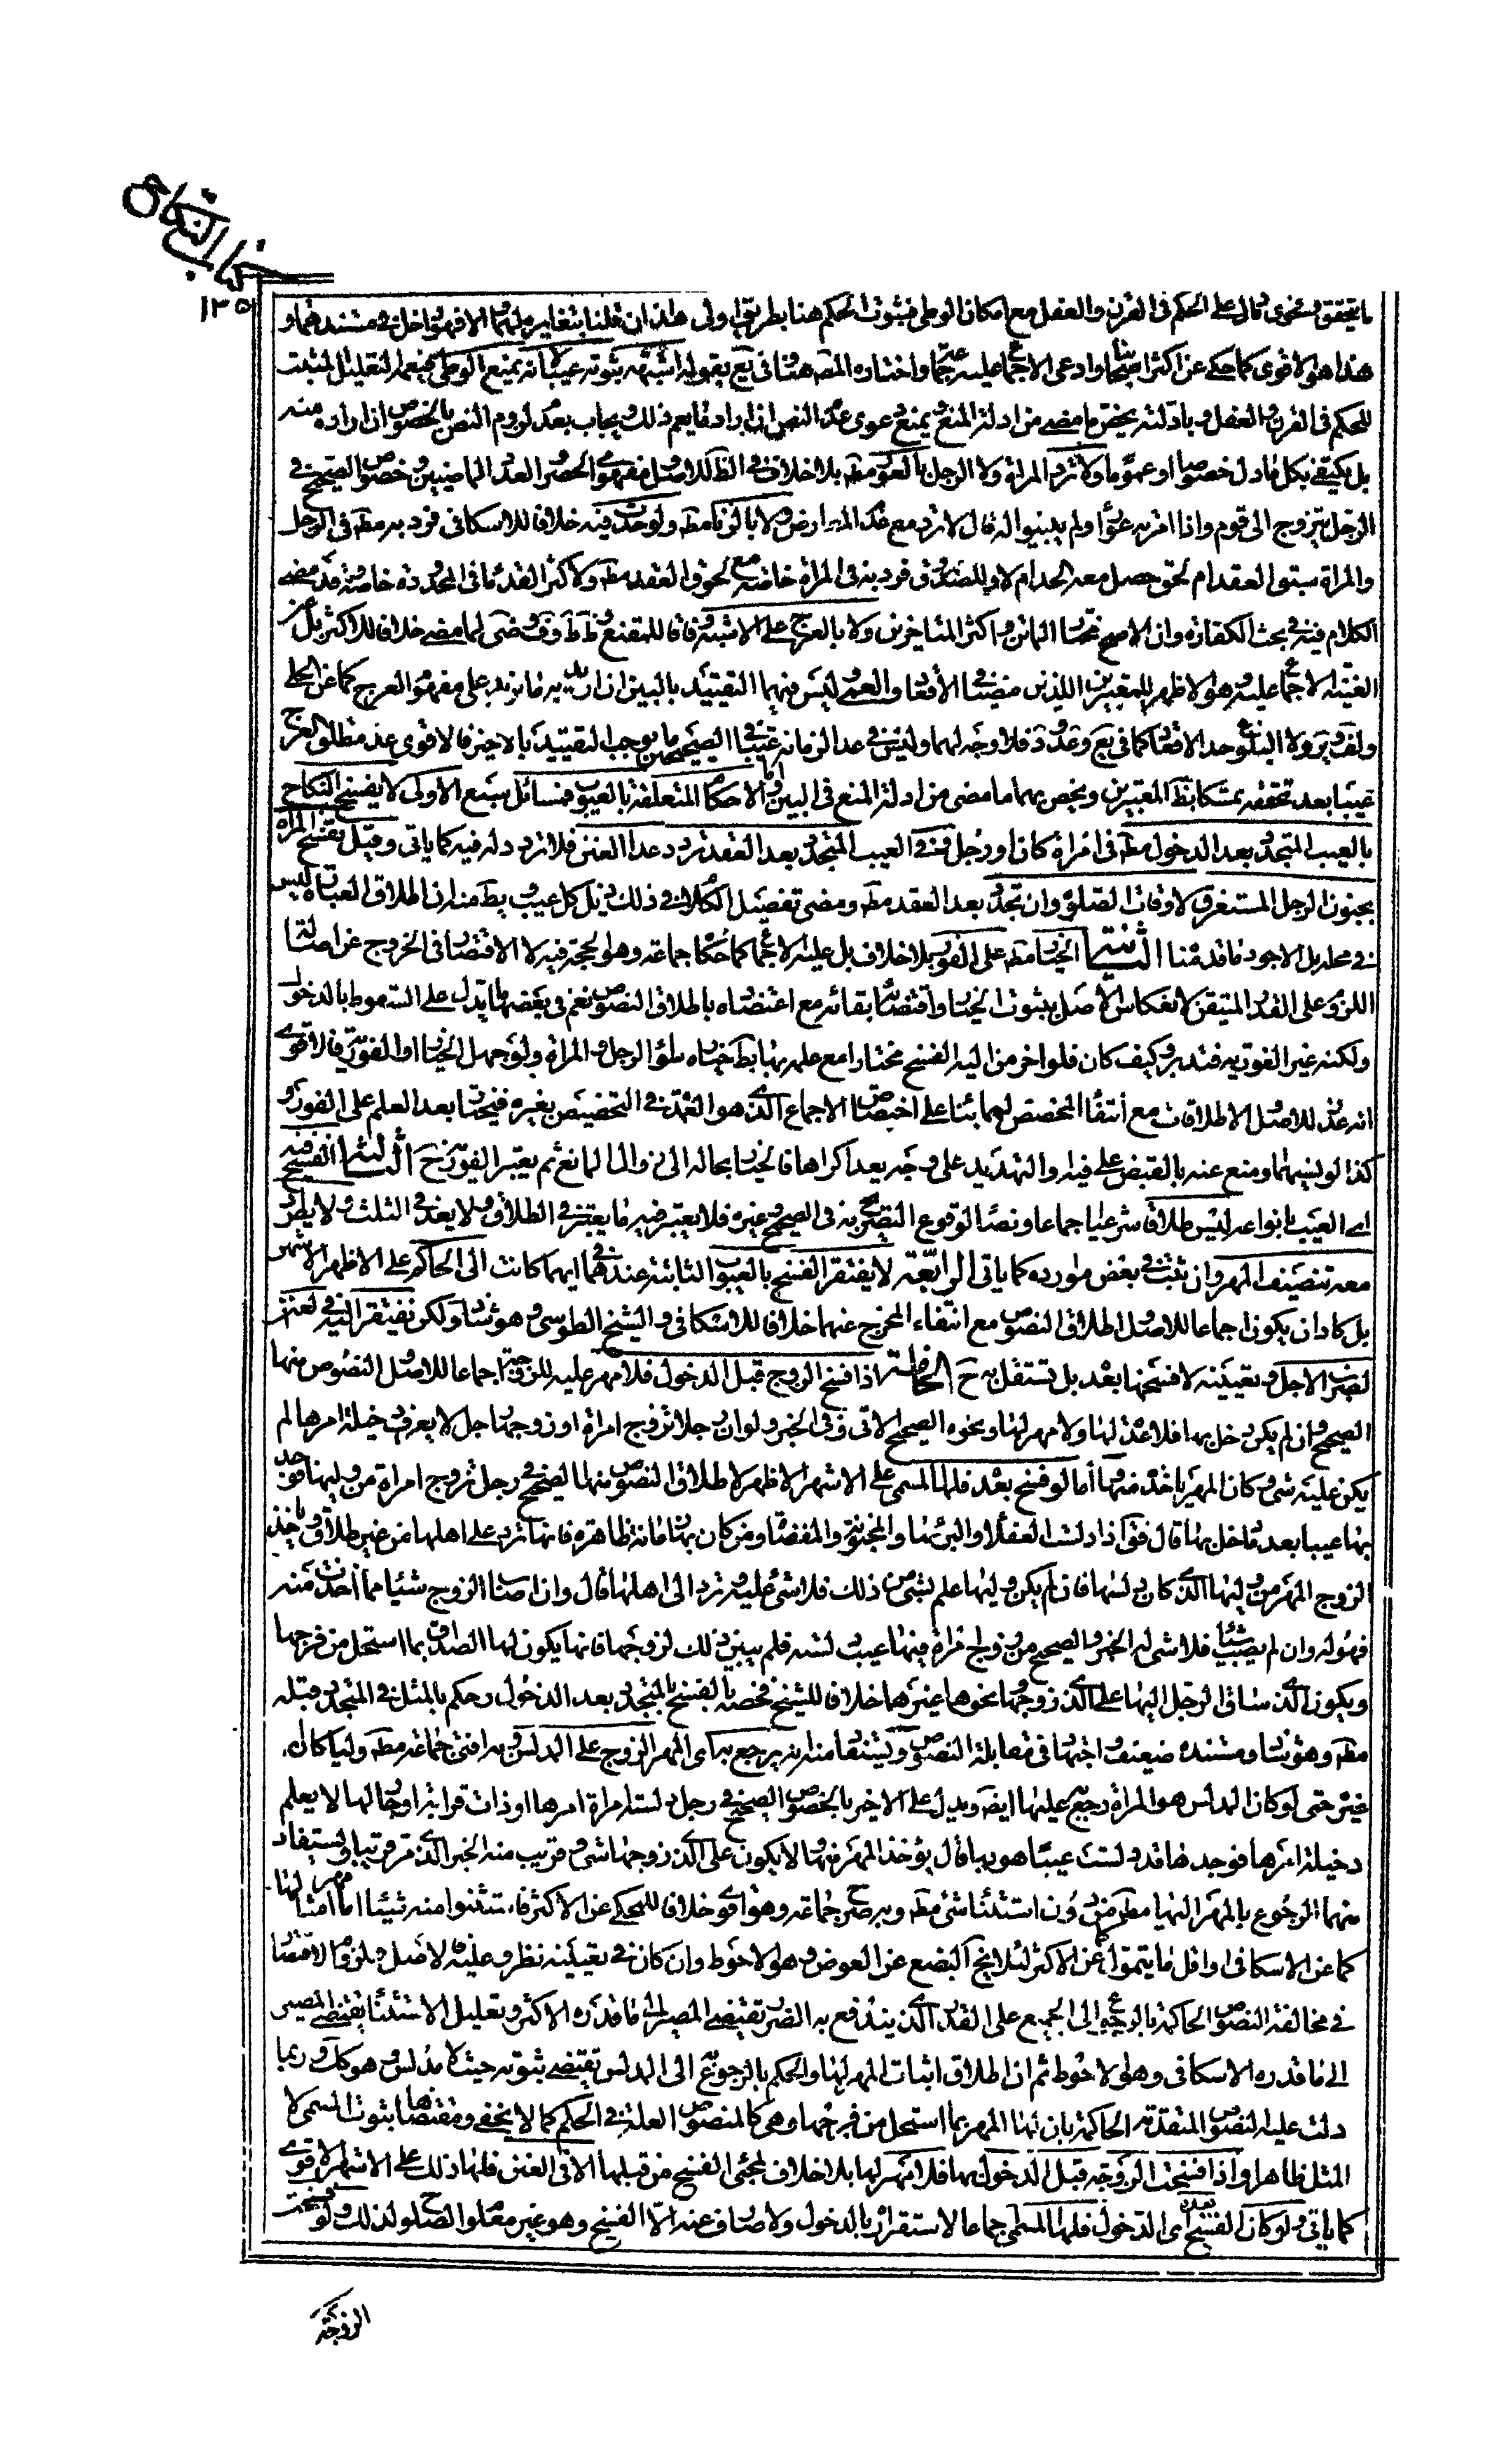 كتاب النكاح
١٣٥
ما يتحقق وفحوى ما دل على الحكم في القرن والعفل مع امكان الوطي فثبوت الحكم هنا بطريق اولى هذا ان قلنا بتغايره لهما والا فهو داخل في مستندهما و
هذا هو الاقوى كما حكى عن اكثر اصحابنا وادعى الاجماع عليه واختاره المصنف هنا وفي يع بقوله اشبهه ثبوته عيبا لانه يمنع الوطي فيعمه التعليل المثبت
للحكم في القرن والعفل وبادلته يخص ما مضى من ادلة المنع ويمنع دعوى عدم النص ان اراد ما يعم ذلك ويجاب بعدم لزوم النص بالخصوص ان اراده منه
بل يكتفى بكل ما دل خصوصا او عموما ولا ترد المراة ولا الرجل بالعور مط بلا خلاف في الظاهر للاصل ومفهوم الحصر والعدد الماضيين وخصوص الصحيح في
الرجل يتزوج الى قوم واذا امراته عوراء ولم يبينوا له قال لا ترد مع عدم المعارض ولا بالزنا مط ولو حدت فيه خلافا للاسكافي فرد به مط في الرجل
والمراة سبق العقد ام لحق حصل معه الحد ام لا وللصدوق فرد به في المراة خاصة مع لحوق العقد مط ولاكثر القدماء في المحدودة خاصة وقد مضى
الكلام فيه في بحث الكفائة وان الاصح مختار الماتن واكثر المتاخرين ولا بالعرج على الاشبه وفاقا للمقنع و ط ف وضى لما مضى خلافا للاكثر بل عن
الغنية الاجماع عليه وهو الاظهر للمعتبرين اللذين مضيا في الاقعاد والعمى وليس فيهما التقييد بالبين ان اريد به ما يزيد على مفهوم العرج كما عن الحلي
ولف وير ولا البلوغ حد الاقعاد كما في يع وعد ود فلا وجه لهما وليس في عد الزمانة عيبا في الصحيحين ما يوجب التقييد بالاخير فالاقوى عد مطلق العرج
عيبا بعد تحققه تمسكا بظ المعتبرين ويخص بهما ما مضى من ادلة المنع في البين واما الاحكام المتعلقة بالعيوب فمسائل سبع الاولى لا يفسخ النكاح
بالعيب المتجدد بعد الدخول مط في امراة كان او رجل وفي العيب المتجدد بعد العقد تردد عدا العنن فلا تردد له فيه كما ياتي وقيل تفسخ المراة
بجنون الرجل المستغرق لاوقات الصلوة وان تجدد بعد العقد مط ومضى تفصيل الكلام في ذلك ذيل كل عيب ويظ منه ان اطلاق العبارة ليس
في محله بل الاجود ما قدمنا الثانية الخيار مط على الفور بلا خلاف بل عليه الاجماع كما حكاه جماعة وهو الحجة فيه لا الاقتصار في الخروج عن اصالة
اللزوم على القدر المتيقن لانعكاس الاصل بثبوت الخيار واقتضائه بقائه مع اعتضاده باطلاق النصوص نعم في بعضها ما يدل على السقوط بالدخول
ولكنه غير الفورية فتدبر وكيف كان فلو اخر من اليه الفسخ مختارا مع علمه بها بطل خياره سواء الرجل والمراة ولو جهل الخيار او الفورية فالاقوى
انه عذر للاصل والاطلاقات مع انتفاء المخصص لهما بناء على اختصاص الاجماع الذي هو العمدة في التخصيص بغيره فيختار بعد العلم على الفور و
كذا لو نسيهما ولو منع عنه بالقبض على فيه او التهديد على وجه يعد اكراها فالخيار بحاله الى زوال المانع ثم يعتبر الفورية ح الثالثة الفسخ فيه
اي العيب بانواعه ليس طلاقا شرعيا اجماعا ونصا لوقوع التصريح به في الصحيح وغيره فلا يعتبر فيه ما يعتبر في الطلاق ولا يعد في الثلث ولا يطرد
معه تنصيف المهر وان ثبت في بعض موارده كما ياتي الرابعة لا يفتقر الفسخ بالعيوب الثابتة عندهما ايهما كانت الى الحاكم على الاظهر الاشهر
بل كاد ان يكون اجماعا للاصل واطلاق النصوص مع انتفاء المخرج عنهما خلافا للاسكافي والشيخ الطوسي وهو شاذ ولكن يفتقر اليه في العنن
لضرب الاجل وتعيينه لا فسخها بعده بل تستقل به ح الخامسة اذا فسخ الزوج قبل الدخول فلا مهر عليه للزوجة اجماعا للاصل والنصوص منها
الصحيح وان لم يكن دخل بها فلا عدة لها ولا مهر لها ونحوه الصحيح الاتي وفي الخبر ولو ان رجلا تزوج امراة او زوجها رجل لا يعرف دخيلة امرها لم
يكن عليه شيء وكان المهر ياخذه منها اما لو فسخ بعده فلها المسمى على الاشهر الاظهر لاطلاق النصوص منها الصحيح في رجل تزوج امراة من وليها فوجد
بها عيبا بعد ما دخل بها قال فقال اذا دلست العفلاء والبرصاء والمجنونة والمفضاة ومن كان بها زمانة ظاهرة فانها ترد على اهلها من غير طلاق وياخذ
الزوج المهر من وليها الذي كان دلسها فان لم يكن وليها علم بشيء من ذلك فلا شيء عليه وترد الى اهلها قال وان اصاب الزوج شيئا مما اخذت منه
فهو له وان لم يصب شيئا فلا شيء له الخبر والصحيح من زوج امراة فيها عيب دلسه فلم يبين ذلك لزوجها فانها يكون لها الصداق بما استحل من فرجها
ويكون الذي ساق الرجل اليها على الذي زوجها ونحوها غيرهما خلافا للشيخ فخصه بالفسخ بالمتجدد بعد الدخول وحكم بالمثل في المتجدد قبله
مط وهو شاذ ومستنده ضعيف واجتهاد في مقابلة النصوص ويستفاد منها انه يرجع به اي المهر الزوج على المدلس وبه افتى جماعة مط وليا كان او
غيره حتى لو كان المدلس هو المراة رجع عليها ايضا ويدل على الاخير بالخصوص الصحيح في رجل ولته امراة امرها او ذات قرابة او جار لها لا يعلم
دخيلة امرها فوجدها قد دلست عيبا هو بها قال يؤخذ المهر منها ولا يكون على الذي زوجها شيء وقريب منه الخبر الذي مر قريبا ويستفاد
منهما الرجوع بالمهر اليها مط من دون استثناء شيء مط وبه صرح جماعة وهو اقوى خلافا للمحكي عن الاكثر فاستثنوا منه شيئا اما مهر امثالها
كما عن الاسكافي او اقل ما يتمول كما عن الاكثر لئلا يخلو البضع عن العوض وهو الاحوط وان كان في تعيينه نظر وعليه فالاصل ولزوم الاقتصار
في مخالفة النصوص الحاكمة بالرجوع الى الجميع على القدر الذي يندفع به الضرر يقتضي المصير الى ما قدره الاكثر وتعليل الاستثناء يقتضي المصير
الى ما قدره الاسكافي وهو الاحوط ثم ان اطلاق اثبات المهر لها والحكم بالرجوع الى المدلس يقتضي ثبوته حيث لا مدلس وهو كذلك وربما
دلت عليه النصوص المتقدمة الحاكمة بان لها المهر بما استحل من فرجها وهي كالمنصوص العلة في الحكم كما لا يخفى ومقتضاها ثبوت المسمى لا
المثل ظاهرا واذا فسخت الزوجة قبل الدخول بها فلا مهر لها بلا خلاف لمجيء الفسخ من قبلها الا في العنن فلها ذلك على الاشهر الاقوى
كما ياتي ولو كان الفسخ بعده اي الدخول فلها المسمى اجماعا لاستقراره بالدخول ولا صارف عنه الا الفسخ وهو غير معلوم الصلوح لذلك ولو فسخت
الزوجة